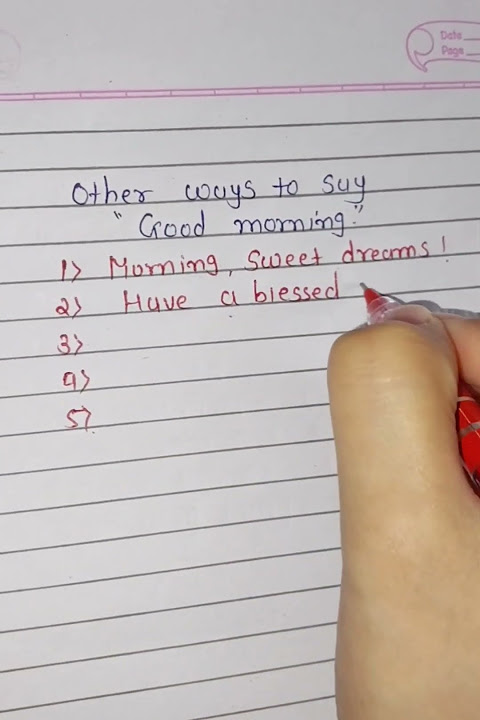 Date
Page
Other ways to say
"Good morning."
1> Morning, Sweet dreams!
2> Have a blessed
3>
4>
5>